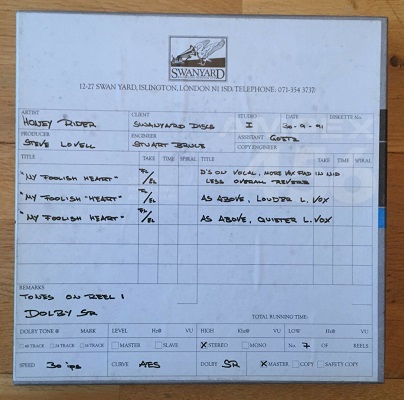 SWANYARD
12-27 SWAN YARD, ISLINGTON, LONDON N1 1SD. TELEPHONE: 071-354 3737
ARTIST CLIENT STUDIO DATE DISKETTE No.
HONEY RIDER SWANYARD DISCS I 30-9-91
PRODUCER ENGINEER ASSISTANT GOETZ
STEVE LOVELL STUART BRUCE COPY ENGINEER
TITLE TAKE TIME SPIRAL TITLE TAKE TIME SPIRAL
"MY FOOLISH HEART" D'S ON VOCAL, MORE VOX PAD IN MID
LESS OVERALL REVERB
"MY FOOLISH HEART" AS ABOVE, LOUDER L. VOX
"MY FOOLISH HEART" AS ABOVE, QUIETER L. VOX
REMARKS
TONES ON REEL 1
DOLBY SR
TOTAL RUNNING TIME:
DOLBY TONE @ MARK LEVEL Hz@ VU HIGH Khz@ VU LOW Hz@ VU
48 TRACK 24 TRACK 16 TRACK MASTER SLAVE X STEREO MONO No. 7 OF REELS
SPEED 30 ips CURVE AES DOLBY SR X MASTER COPY SAFETY COPY